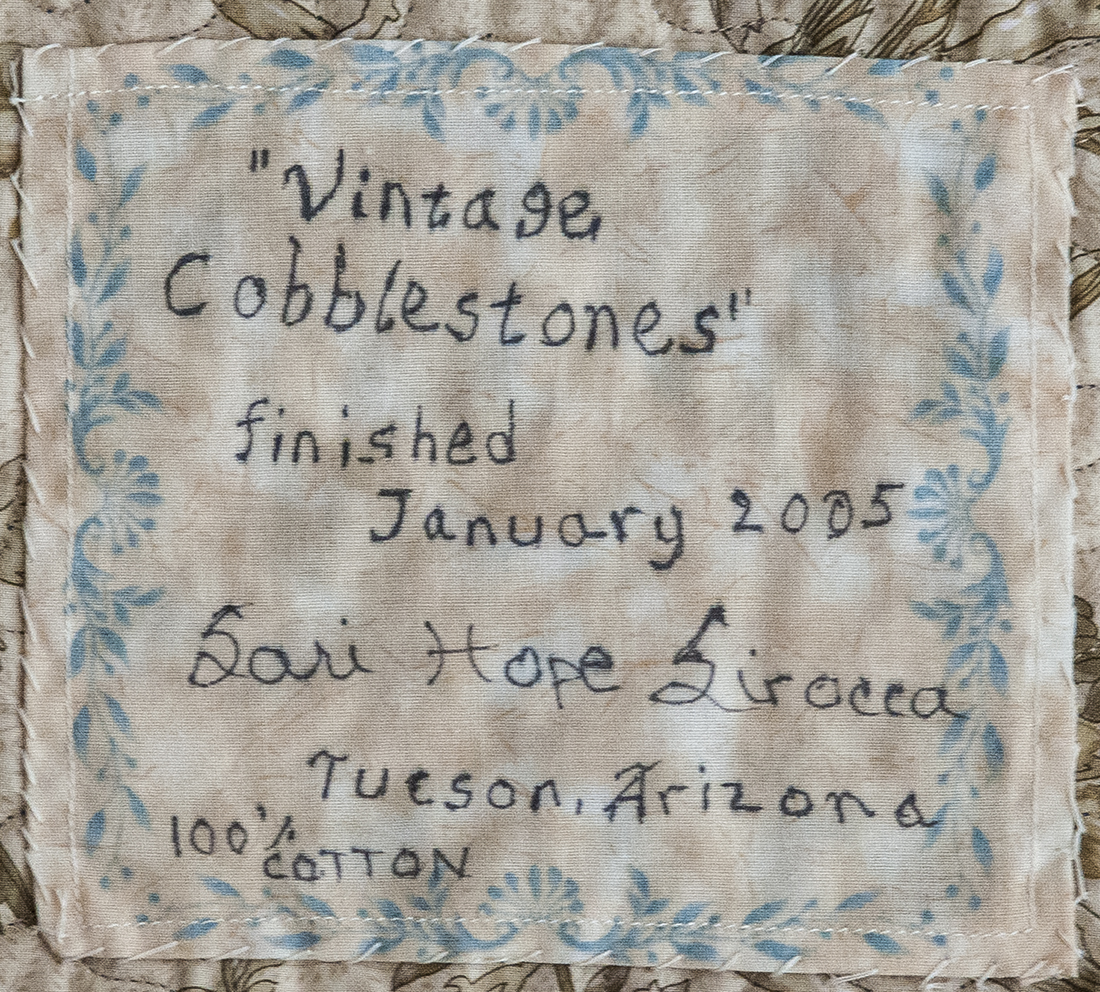 "Vintage
Cobblestones"
finished
January 2005
Sari Hope Sirocca
Tucson, Arizona
100%
COTTON